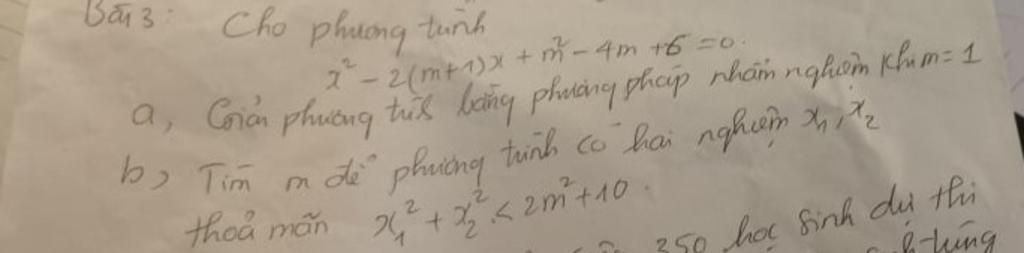 Bài 3: Cho phương trình
x² - 2(m+1)x + m² - 4m + 6 = 0.
a, Giải phương trình bằng phương pháp nhẩm nghiệm khi m = 1
b, Tìm m để phương trình có hai nghiệm x₁, x₂
thoả mãn x₁² + x₂² < 2m² + 10.
350 học sinh dự thi